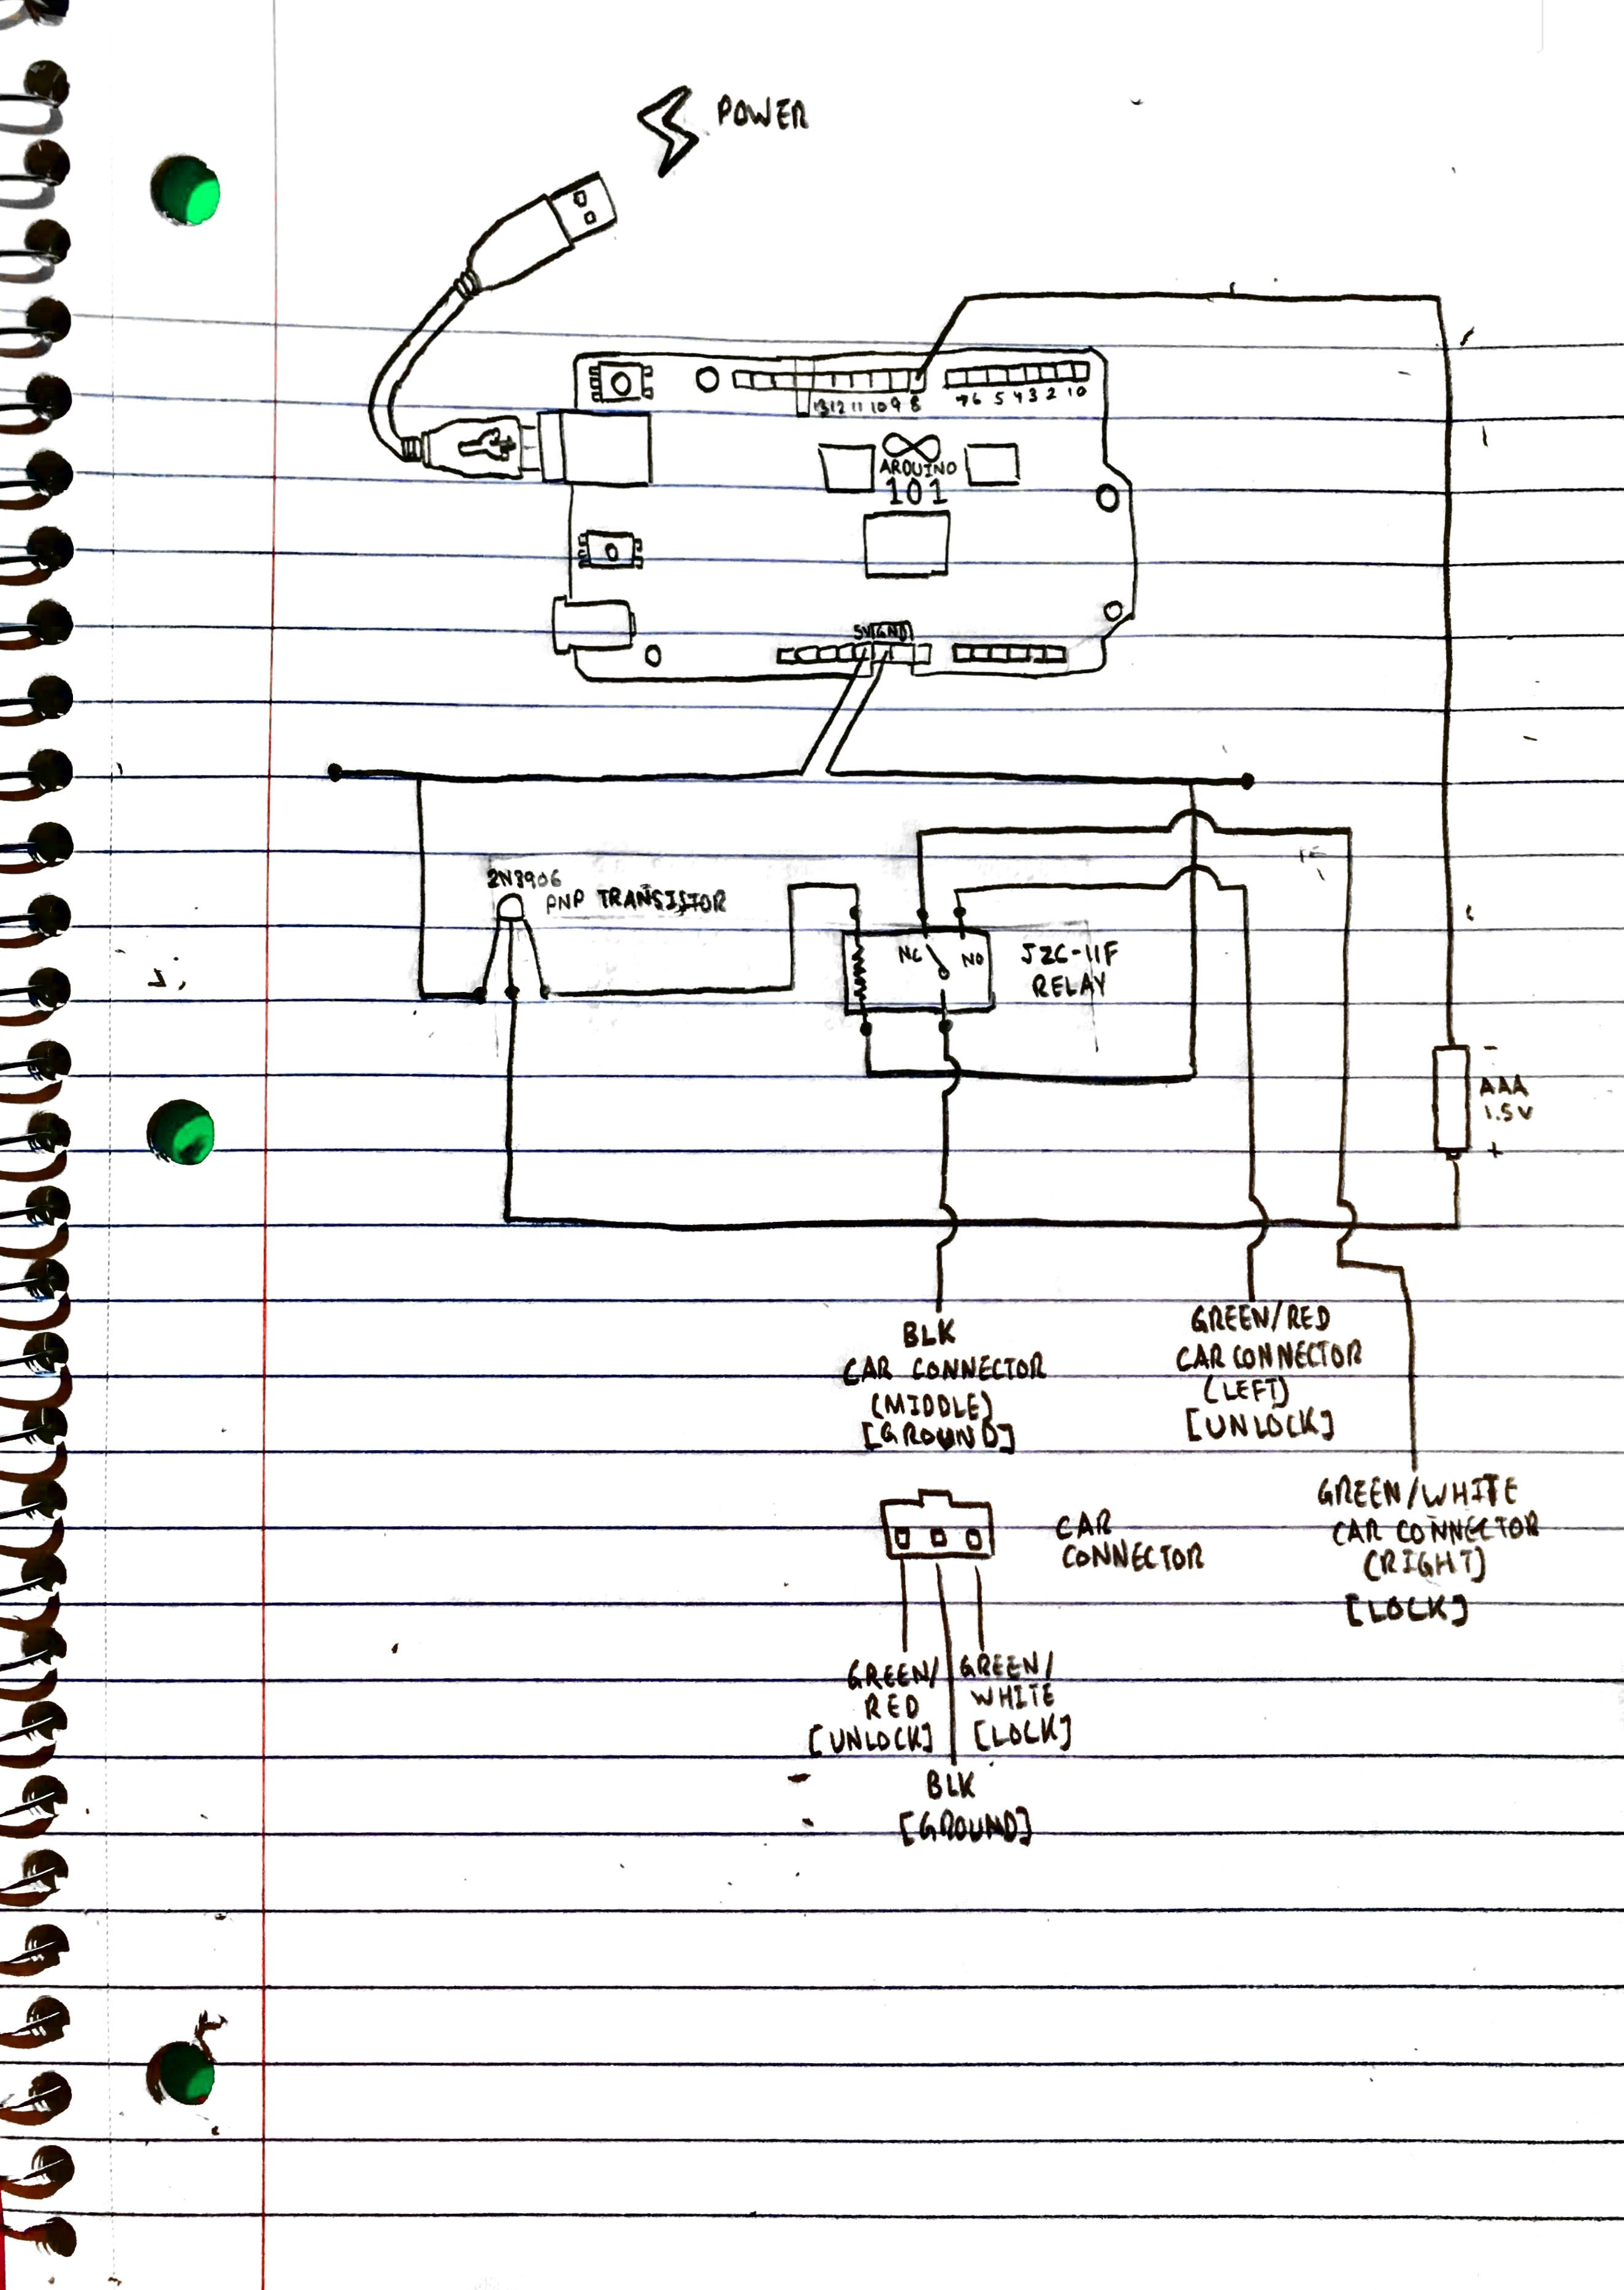 POWER
13 12 11 10 9 8
7 6 5 4 3 2 1 0
ARDUINO
101
5V GND
2N3906
PNP TRANSISTOR
NC
NO
JZC-11F
RELAY
-
AAA
1.5V
+
BLK
CAR CONNECTOR
(MIDDLE)
[GROUND]
GREEN/RED
CAR CONNECTOR
(LEFT)
[UNLOCK]
GREEN/WHITE
CAR CONNECTOR
(RIGHT)
[LOCK]
CAR
CONNECTOR
GREEN/
RED
[UNLOCK]
GREEN/
WHITE
[LOCK]
BLK
[GROUND]